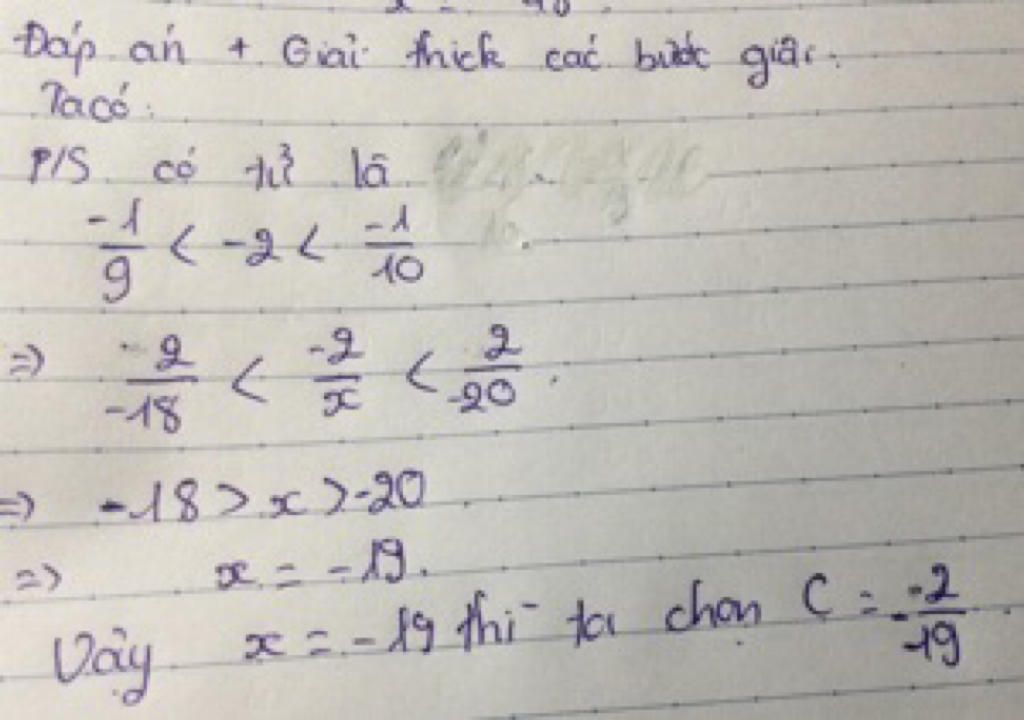 Đáp án + Giải thích các bước giải:
Ta có:
P/S có tử là
-1/9 < -2 < -1/10
=> 2/-18 < -2/x < 2/-20.
=> -18 > x > -20
=> x = -19.
Vậy x = -19 thì ta chọn C = -2/-19.